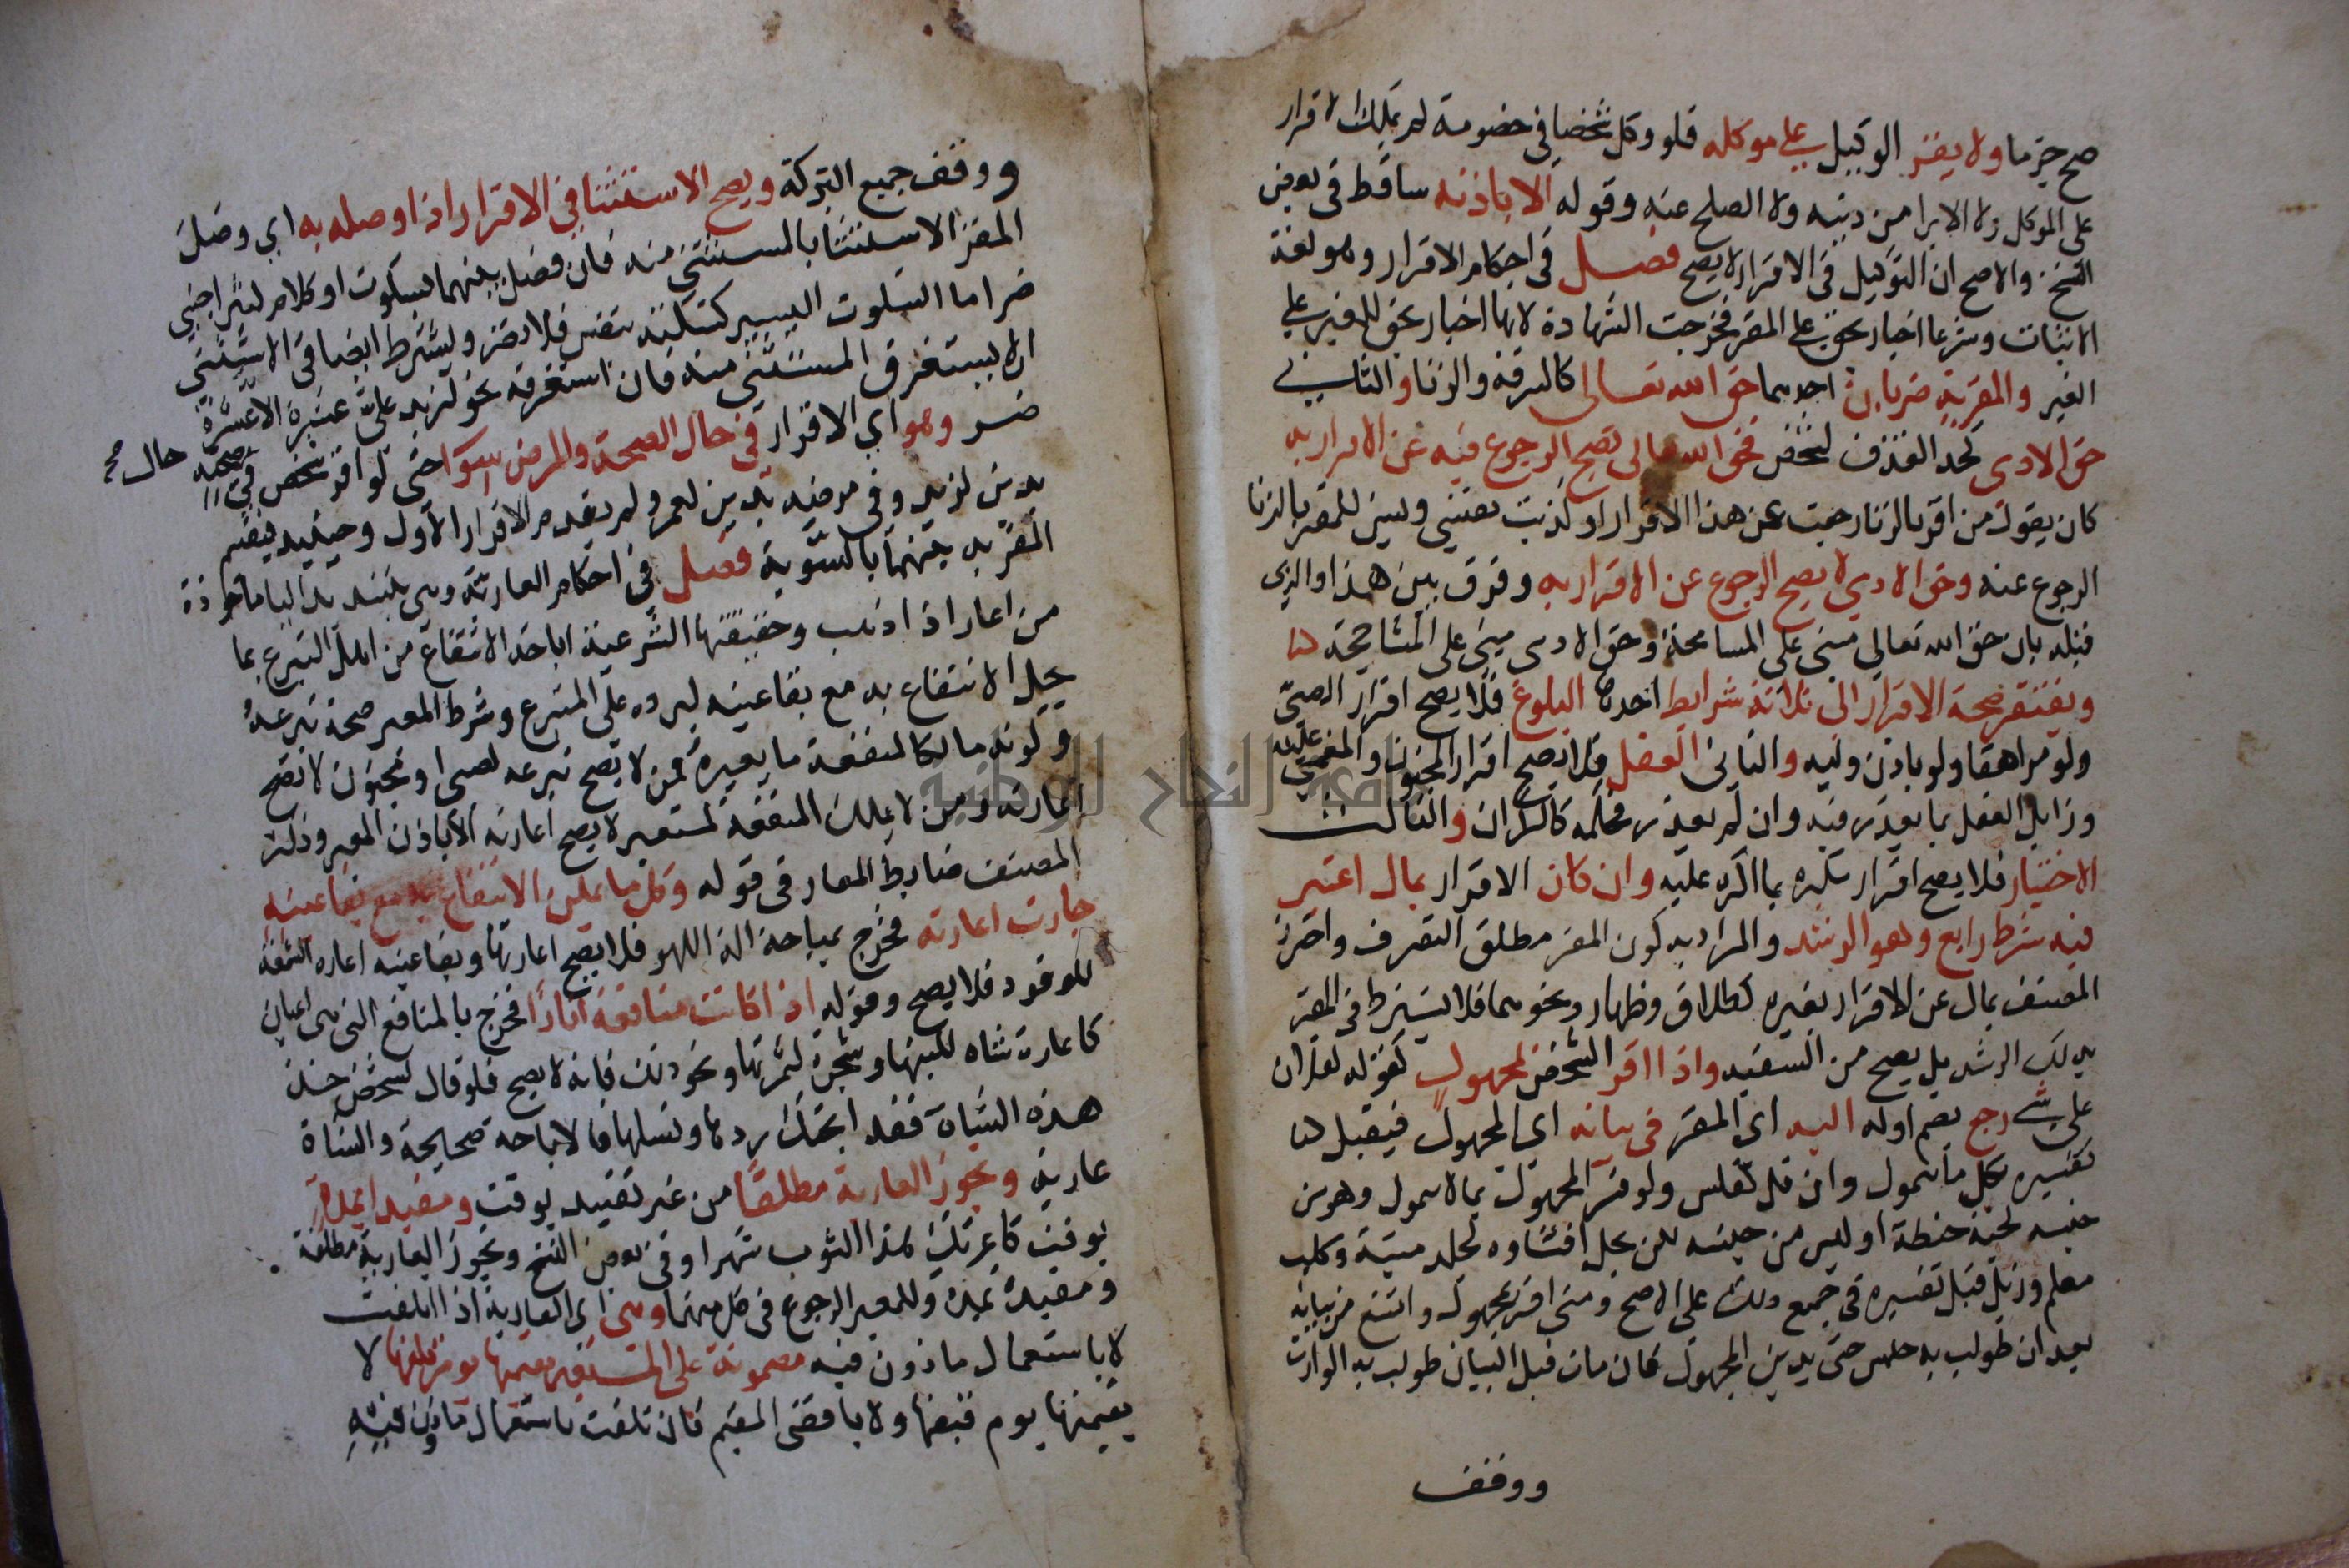 صح جزما ولا يقر الوكيل على موكله فلو وكل شخصا في خصومة لم يملك الاقرار
على الموكل ولا الابرا من دينه ولا الصلح عنه وقوله الا باذنه ساقط في بعض
النسخ والاصح ان التوكيل في الاقرار لا يصح فصل في احكام الاقرار وهو لغة
الاثبات وشرعا اخبار بحق على المقر فخرجت الشهادة لانها اخبار بحق للغير على
الغير والمقر به ضربان احدهما حق الله تعالى كالسرقة والزنا والثاني
حق الادمي كحد القذف لشخص فحق الله تعالى يصح الرجوع فيه عن الاقرار به
كان يقول من اقر بالزنا رجعت عن هذا الاقرار او كذبت فيه ويسن للمقر بالزنا
الرجوع عنه وحق الادمي لا يصح الرجوع عن الاقرار به وفرق بين هذا والذي
قبله بان حق الله تعالى مبنى على المسامحة وحق الادمي مبنى على المشاححة
وتفتقر صحة الاقرار الى ثلاثة شرايط احدها البلوغ فلا يصح اقرار الصبي
ولو مراهقا ولو باذن وليه والثاني العقل فلا يصح اقرار المجنون والمغمى عليه
وزايل العقل بما يعذر فيه وان لم يعذر فحكمه كالسكران والثالث
الاختيار فلا يصح اقرار مكره بما اكره عليه وان كان الاقرار بمال اعتبر
فيه شرط رابع وهو الرشد والمراد به كون المقر مطلق التصرف واحترز
المصنف بمال عن الاقرار بغيره كطلاق وظهار ونحوهما فلا يشترط في المقر
بذلك الرشد بل يصح من السفيه واذا اقر الشخص بمجهول كقوله لفلان
علي شي رجع بضم اوله اليه اي المقر في بيانه اي المجهول فيقبل
تفسيره بكل ما يتمول وان قل كفلس ولو فسر المجهول بما لا يتمول وهو من
جنسه كحبة حنطة او ليس من جنسه لكن يحل اقتناوه كجلد ميتة وكلب
معلم وزبل قبل تفسيره في جميع ذلك على الاصح ومتى اقر بمجهول وامتنع من بيانه
بعد ان طولب به حبس حتى يبين المجهول فان مات قبل البيان طولب به الوارث
ووقف
ووقف جميع التركة ويصح الاستثنا في الاقرار اذا وصله به اي وصل
المقر الاستثنا بالمستثنى منه فان فصل بينهما بسكوت او كلام كثير اجنبي
ضر اما السكوت اليسير كسكتة تنفس فلا يضر ويشترط ايضا في الاستثنى
ان لا يستغرق المستثنى منه فان استغرقه نحو لزيد علي عشرة الا عشرة
ضر وهو اي الاقرار في حال الصحة والمرض سوا حتى لو اقر شخص في صحته
حال صح
بدين لزيد وفي مرضه بدين لعمرو لم يقدم الاقرار الاول وحينيذ فيقسم
المقر به بينهما بالسوية فصل في احكام العارية وهي بتشديد اليا ماخوذة
من اعار اذا ذهب وحقيقتها الشرعية اباحة الانتفاع من اهل التبرع بما
يحل الانتفاع به مع بقا عينه ليرده على المتبرع وشرط المعير صحة تبرعه
وكونه مالكا لمنفعة ما يعيره فمن لا يصح تبرعه كصبى ومجنون لا تصح
اعارته ومن لا يملك المنفعة كمستعير لا يصح اعارته الا باذن المعير وذكر
المصنف ضابط المعار في قوله وكل ما يمكن الانتفاع به مع بقا عينه
جازت اعارته فخرج بمباحة الة اللهو فلا يصح اعارتها وبقا عينه اعارة الشمعة
للوقود فلا يصح وقوله اذا كانت منافعه اثارا فخرج بالمنافع التي هي اعيان
كاعارة شاه للبنها وشجرة لثمرتها ونحو ذلك فانه لا يصح فلو قال لشخص خذ
هذه الشاة فقد ابحتك درها ونسلها فالاباحة صحيحة والشاة
عارية وتجوز العارية مطلقا من غير تقييد بوقت ومقيدا بمدة
بوقت كاعرتك هذا الثوب شهرا وفي بعض النسخ وتجوز العارية مطلقة
ومقيدة بمدة وللمعير الرجوع في كل منهما وهي اي العارية اذا تلفت
لا باستعمال ماذون فيه مضمونة على المستعير بقيمتها يوم تلفها لا
بقيمتها يوم قبضها ولا باقصى القيم فان تلفت باستعمال ماذون فيه